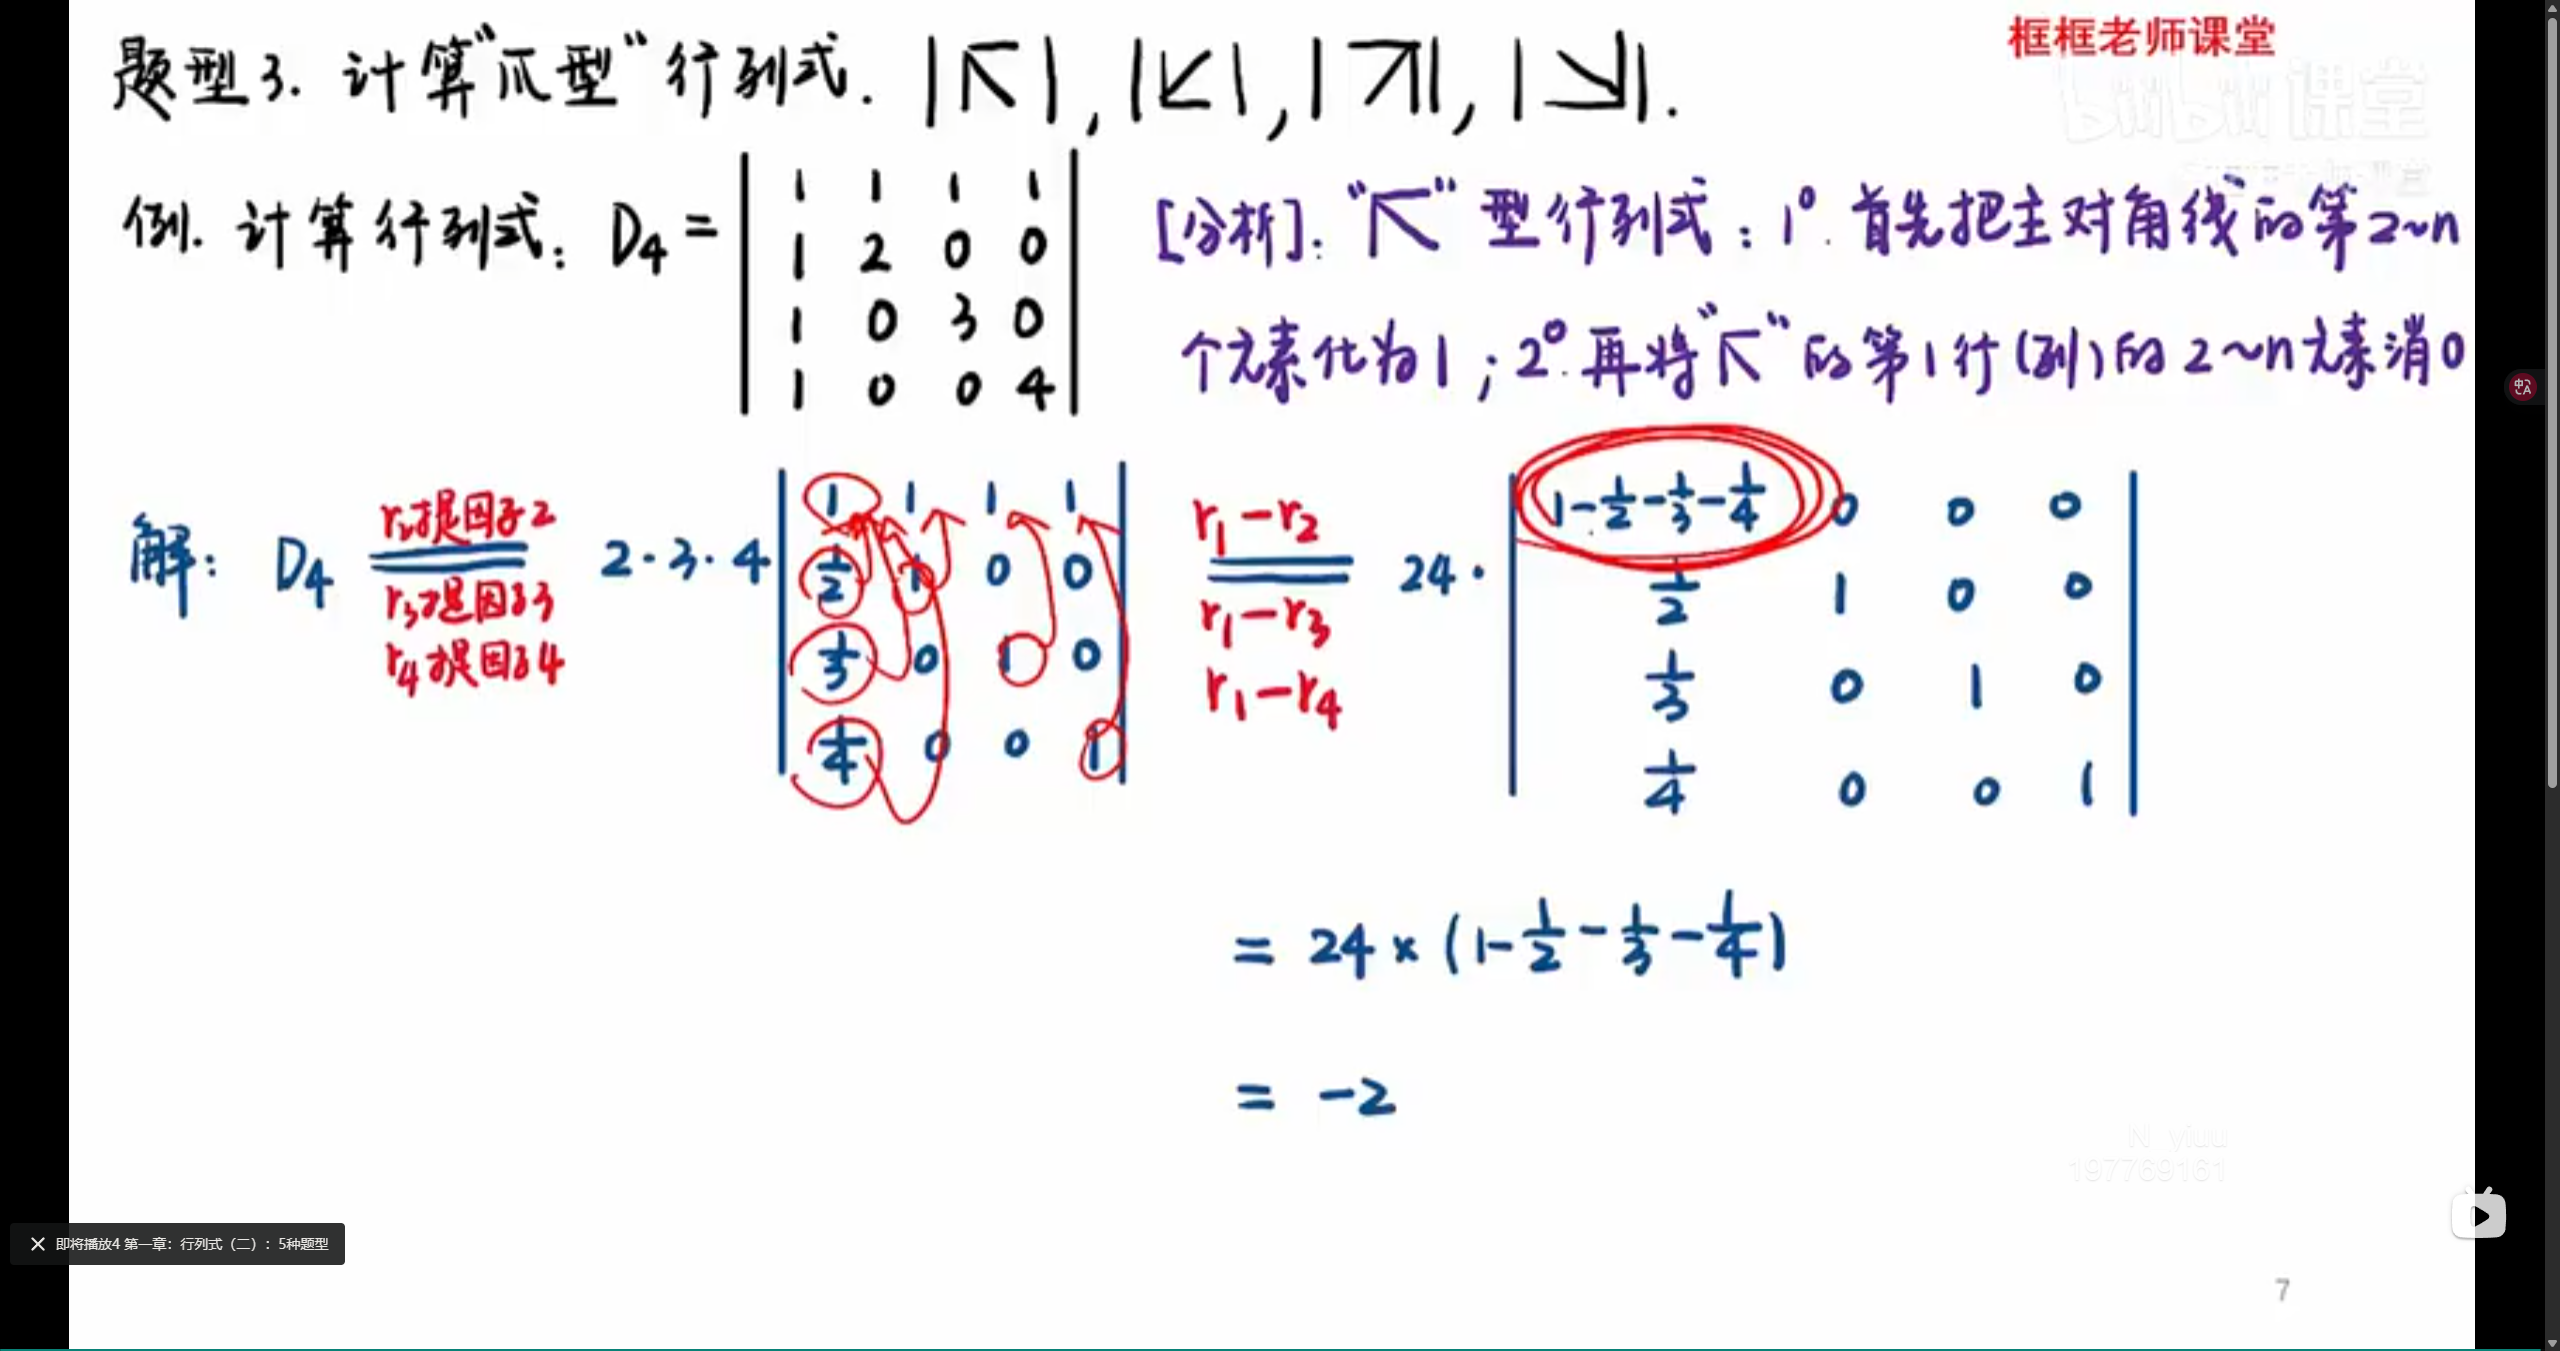 框框老师课堂
bilibili课堂
题型3. 计算“爪型”行列式. |↖|, |↙|, |↗|, |↘|.
例. 计算行列式: D₄ =
1 1 1 1
1 2 0 0
1 0 3 0
1 0 0 4
[分析]: “↖”型行列式: 1°. 首先把主对角线的第2~n
个元素化为1; 2°. 再将“↖”的第1行(列)的2~n元素消0
解: D₄
r₂提因子2
r₃提因子3
r₄提因子4
2·3·4
1 1 1 1
1/2 1 0 0
1/3 0 1 0
1/4 0 0 1
r₁-r₂
r₁-r₃
r₁-r₄
24·
1-1/2-1/3-1/4 0 0 0
1/2 1 0 0
1/3 0 1 0
1/4 0 0 1
= 24×(1-1/2-1/3-1/4)
= -2
N_yiuu
197769161
即将播放4 第一章：行列式（二）：5种题型
7